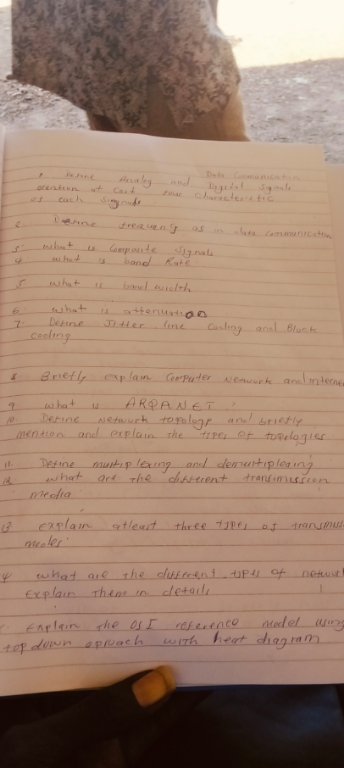 Data Communication
1. Define Analog and Digital Signals
mention at four Characteristic
of each signals
2. Define frequency as in data communication
3. what is Composite signals
4 what is baud Rate
5 what is bandwidth
6 what is attenuation
7. Define Jitter line Coding and Block
coding
8. Briefly explain Computer Network and internet
9 what is ARPANET
10. Define network topology and briefly
mention and explain the types of topologies
11. Define multiplexing and demultiplexing
12. what are the different transmission
media
13 explain atleast three types of transmiss
modes
4 what are the different types of network
Explain them in details
Explain the OSI reference model using
top down aproach with neat diagram